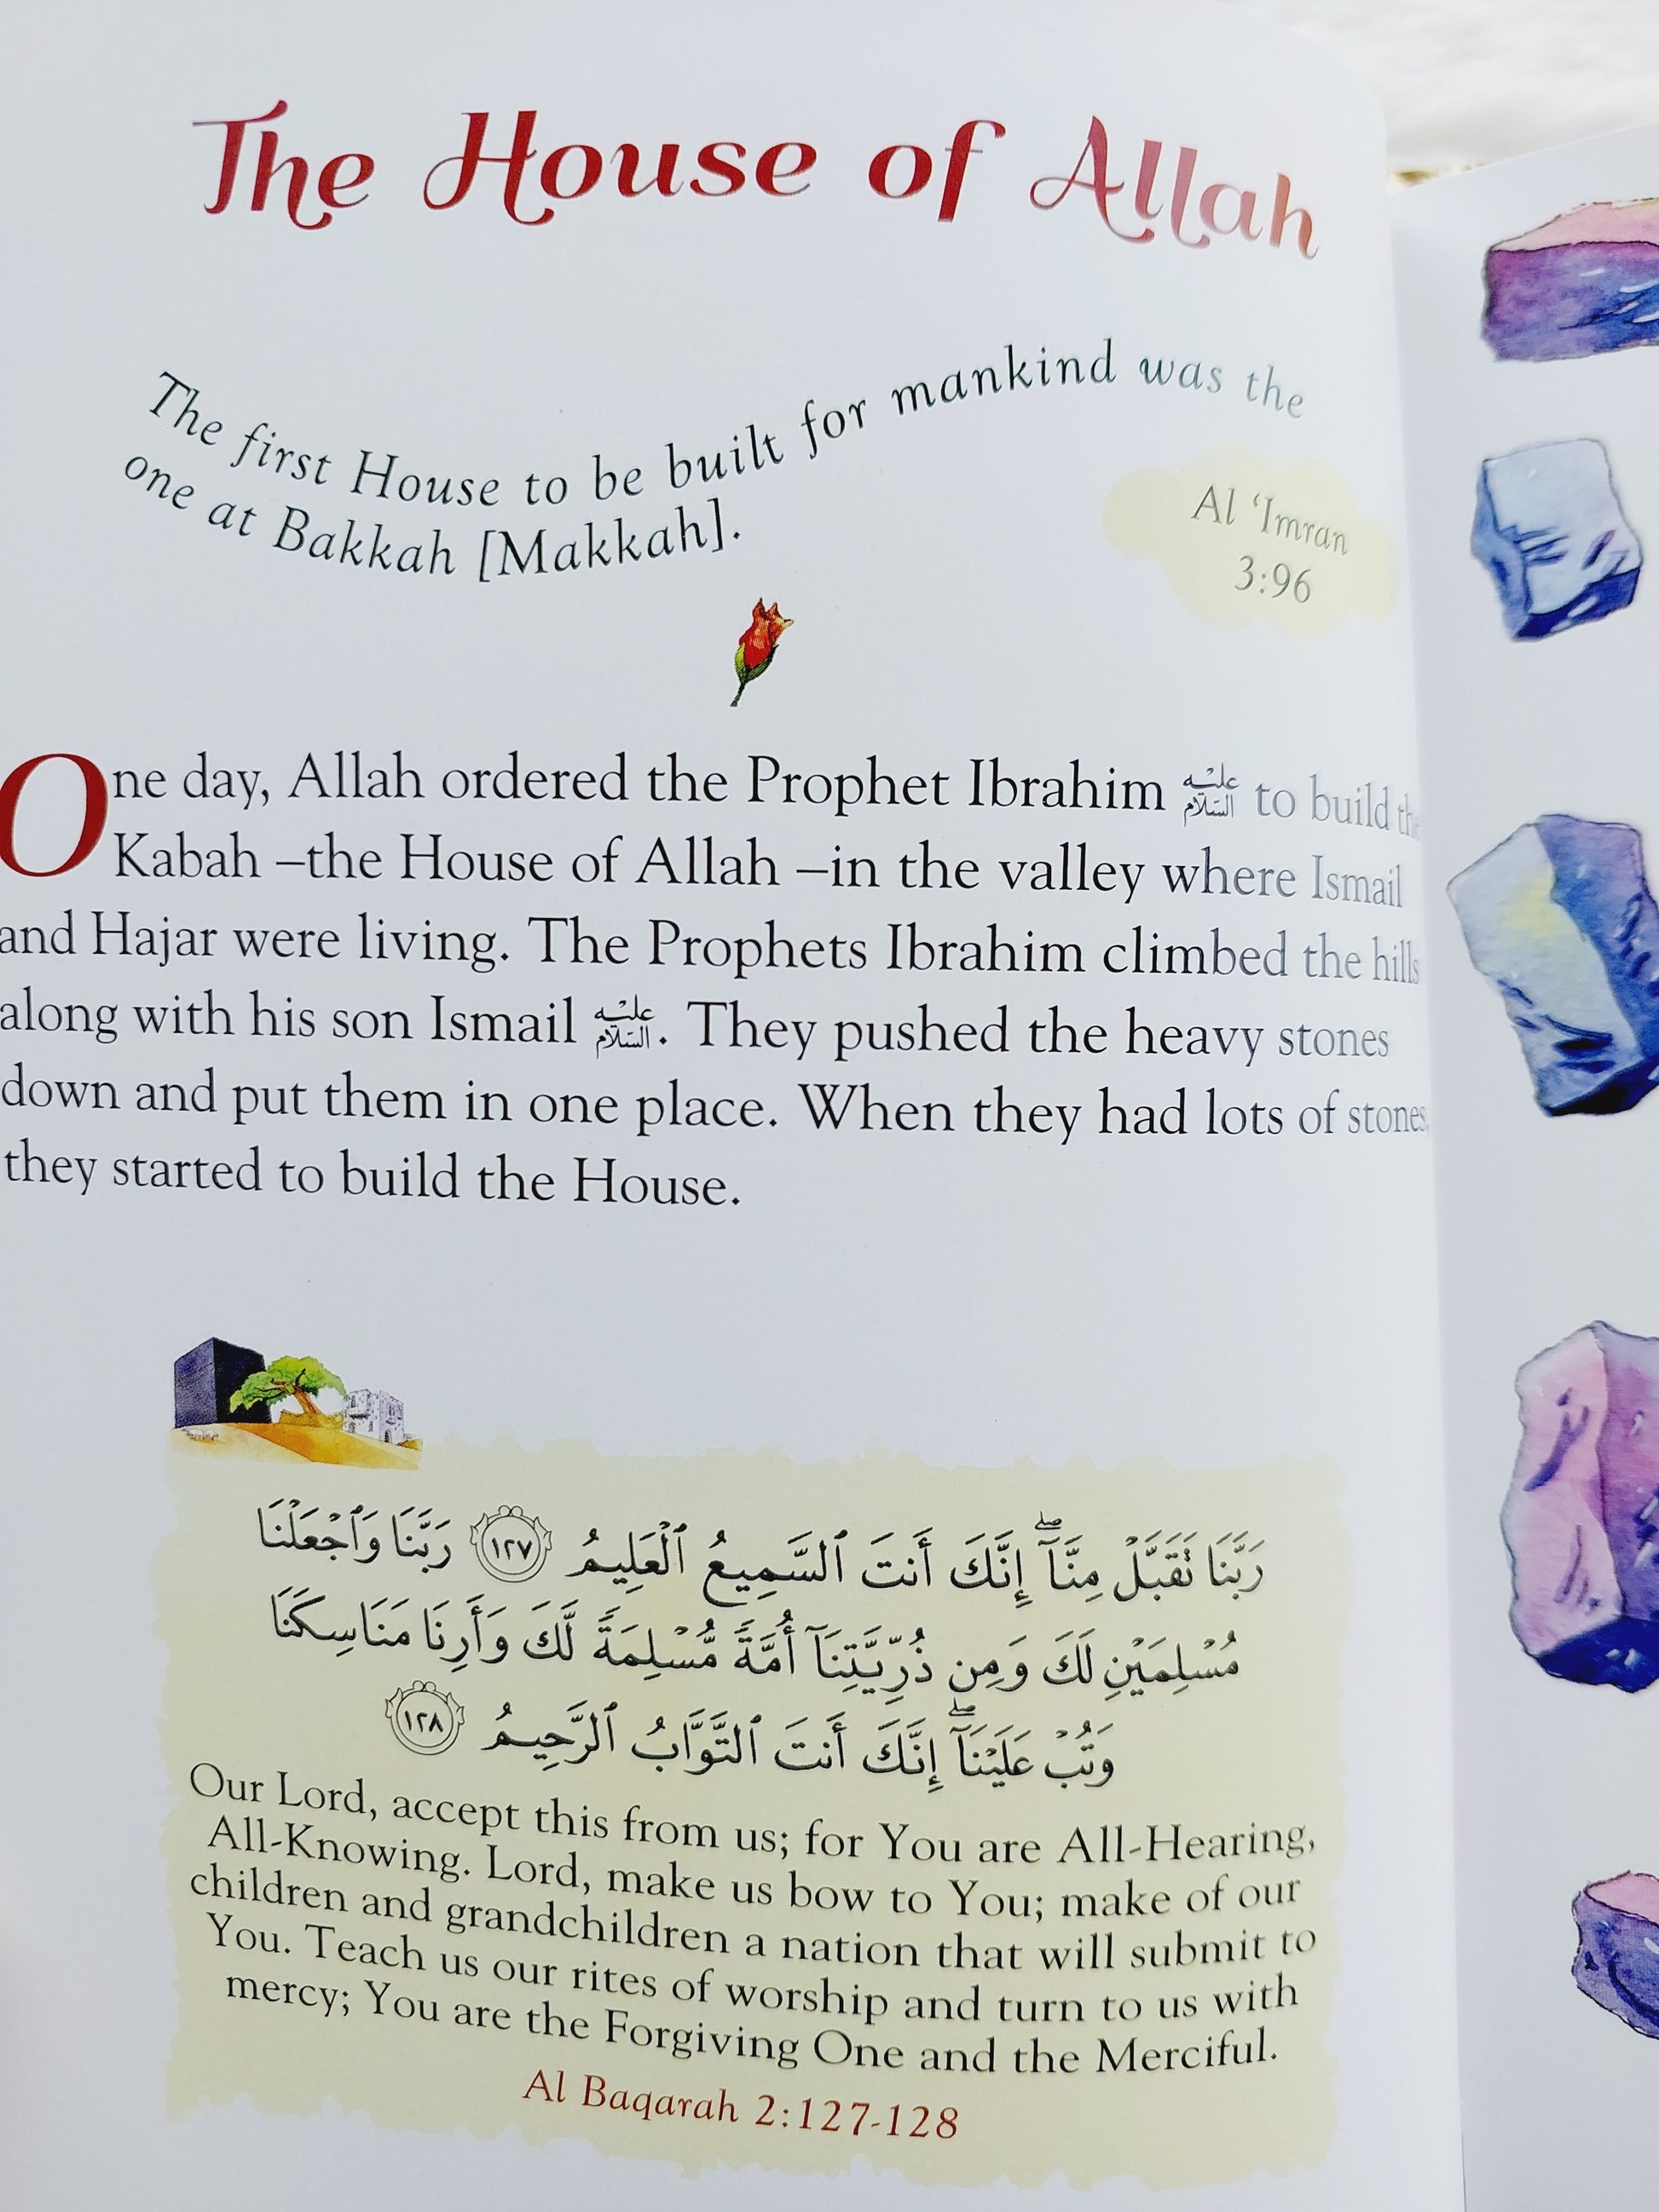 The House of Allah
The first House to be built for mankind was the
one at Bakkah [Makkah].
Al ‘Imran
3:96
One day, Allah ordered the Prophet Ibrahim عليه السلام to build the
Kabah –the House of Allah –in the valley where Ismail
and Hajar were living. The Prophets Ibrahim climbed the hills
along with his son Ismail عليه السلام. They pushed the heavy stones
down and put them in one place. When they had lots of stones,
they started to build the House.
رَبَّنَا تَقَبَّلْ مِنَّآ ۖ إِنَّكَ أَنتَ ٱلسَّمِيعُ ٱلْعَلِيمُ ١٢٧ رَبَّنَا وَٱجْعَلْنَا
مُسْلِمَيْنِ لَكَ وَمِن ذُرِّيَّتِنَآ أُمَّةً مُّسْلِمَةً لَّكَ وَأَرِنَا مَنَاسِكَنَا
وَتُبْ عَلَيْنَآ ۖ إِنَّكَ أَنتَ ٱلتَّوَّابُ ٱلرَّحِيمُ ١٢٨
Our Lord, accept this from us; for You are All-Hearing,
All-Knowing. Lord, make us bow to You; make of our
children and grandchildren a nation that will submit to
You. Teach us our rites of worship and turn to us with
mercy; You are the Forgiving One and the Merciful.
Al Baqarah 2:127-128